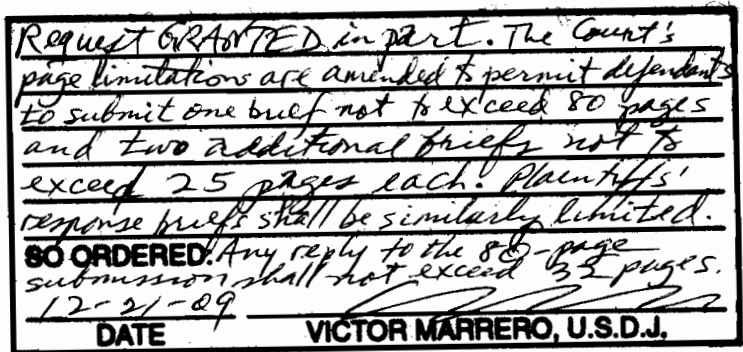 Request GRANTED in part. The Court's
page limitations are amended to permit defendants
to submit one brief not to exceed 80 pages
and two additional briefs not to
exceed 25 pages each. Plaintiffs'
response briefs shall be similarly limited.
SO ORDERED. Any reply to the 80-page
submission shall not exceed 32 pages.
12-21-09
DATE VICTOR MARRERO, U.S.D.J.